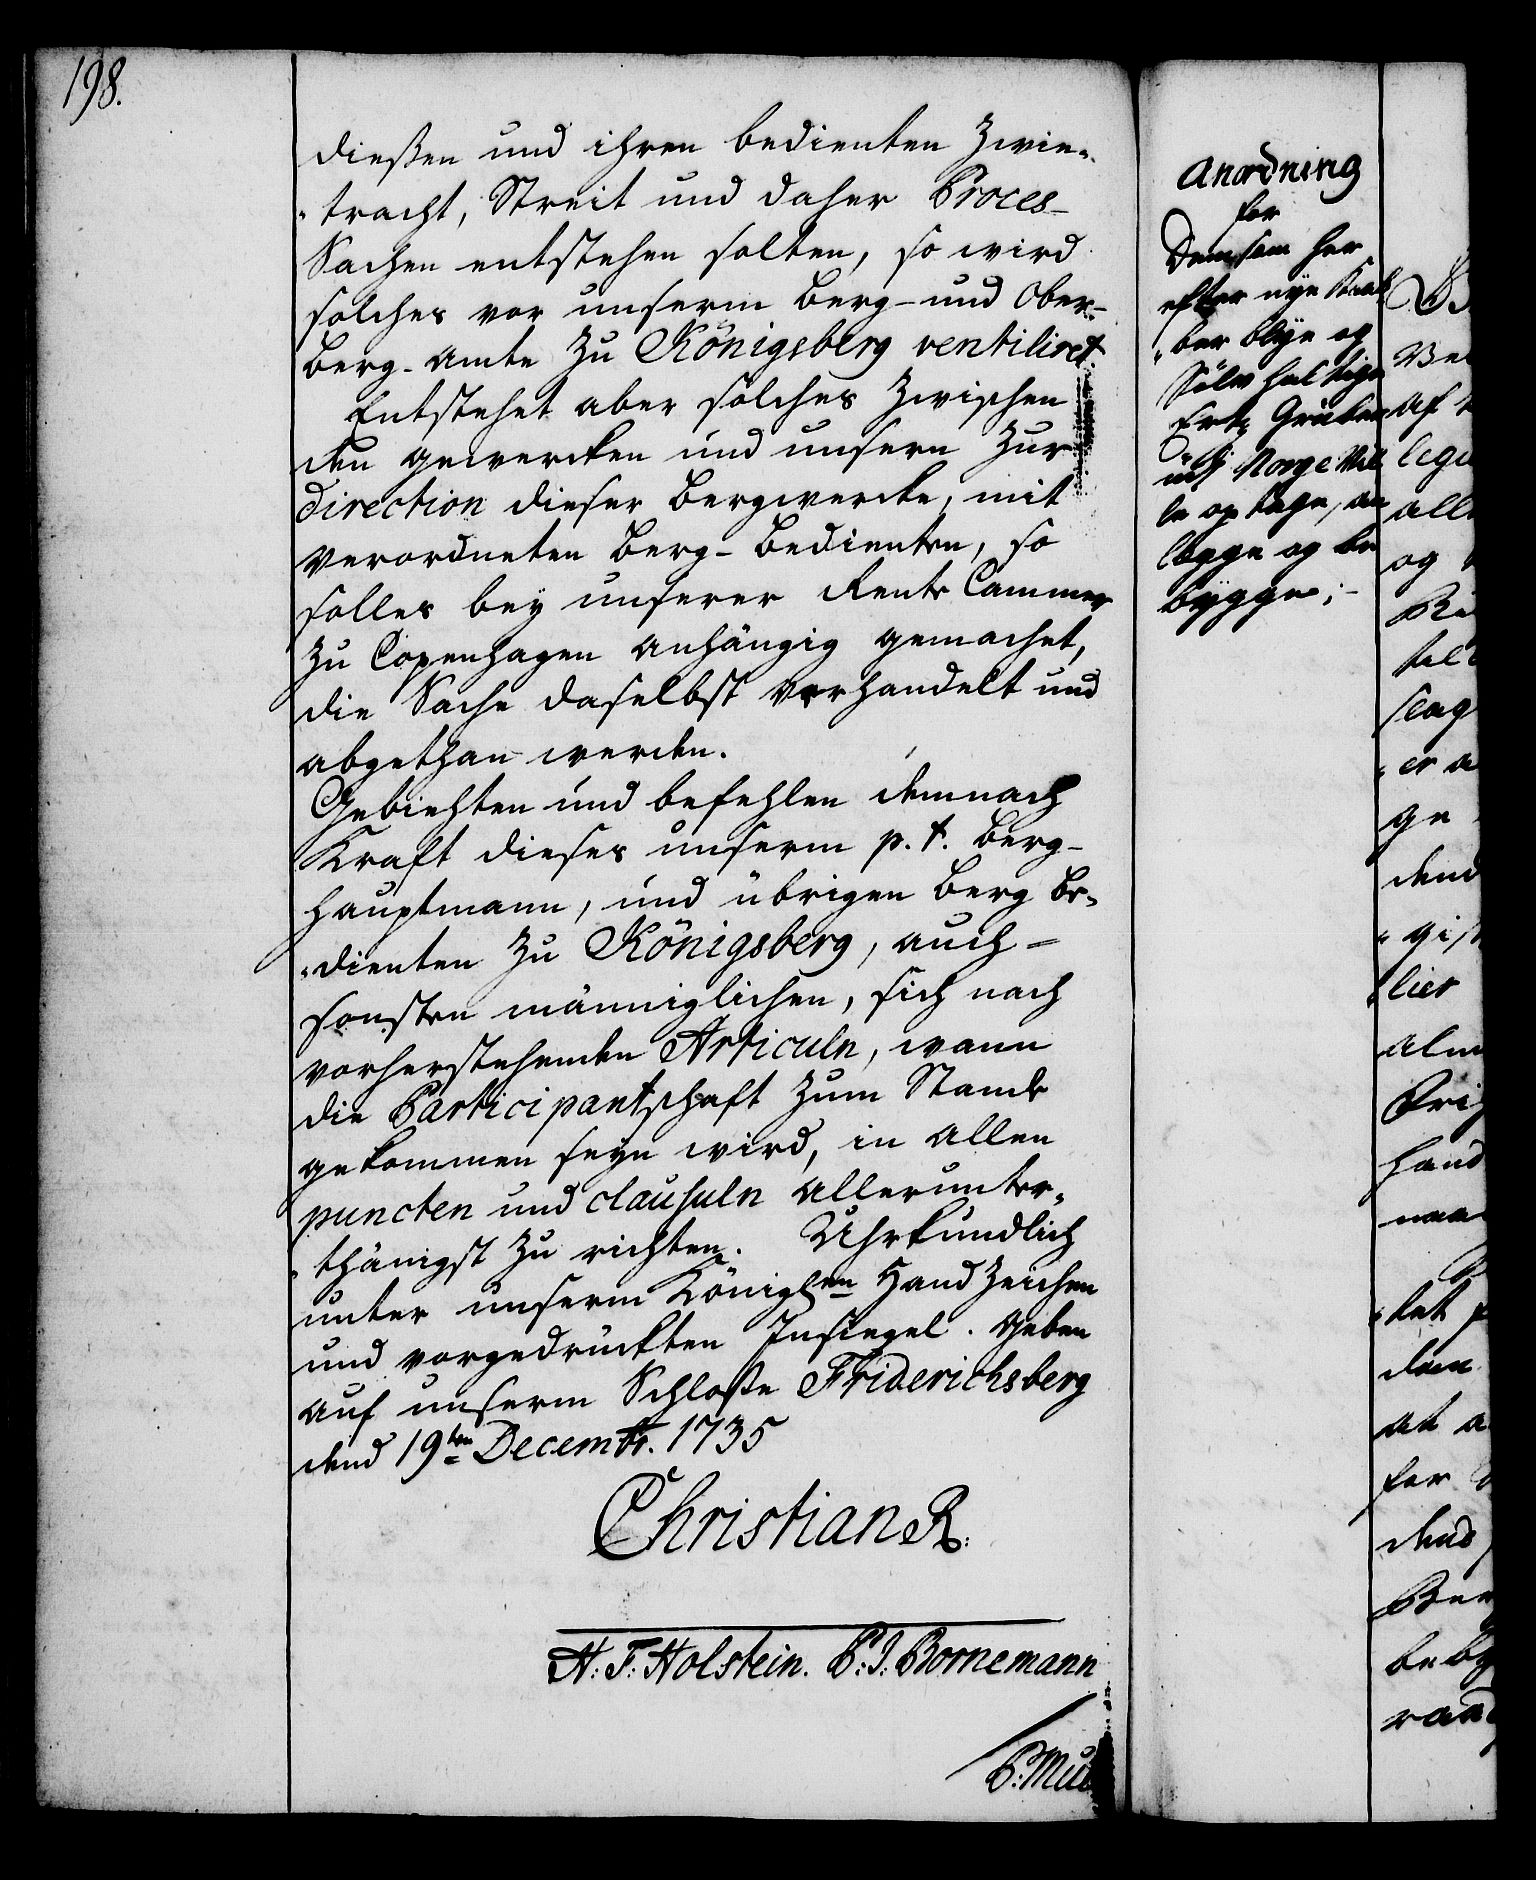 198.
dießen und ihren bedienten Zwie„
„tracht, Streit und daher Proces-
Sachen entstehen solten, so wird
solches vor unserm Berg- und Ober-
Berg-Amte zu Königsberg ventiliret.
Entstehet aber solches zwischen
den gewercken und unsern zur
direction dieser Bergwercke, mit
verordneten Berg-Bedienten, so
solles bey unserer Rente Cammer
zu Copenhagen anhängig gemachet,
die Sache daselbst verhandelt und
abgethan werden.
Gebiehten und befehlen demnach
Kraft dieses unserm p. t. Berg-
hauptmann, und übrigen Berg be„
„dienten zu Königsberg, auch-
sonsten männiglichen, sich nach
vorherstehenden Articuln, wann
die Participantschaft zum Stande
gekommen seyn wird, in allen
puncten und clausuln allerunter„
„thänigst zu richten. Uhrkundlich
unter unserm Königlen HandZeichen
und vorgedruckten Insiegel. Geben
auf unserm Schloße Friderichsberg
dend 19ten Decembr. 1735
Christian R.
H: F: Holstein. P: J: Bornemann
Anordning
for
Dem som her
efter nye Kaab
„ber blye og
Sölv haltige
Ertz Gruber
udj Norge Vil
le optage, an
legge og be
bygge;-